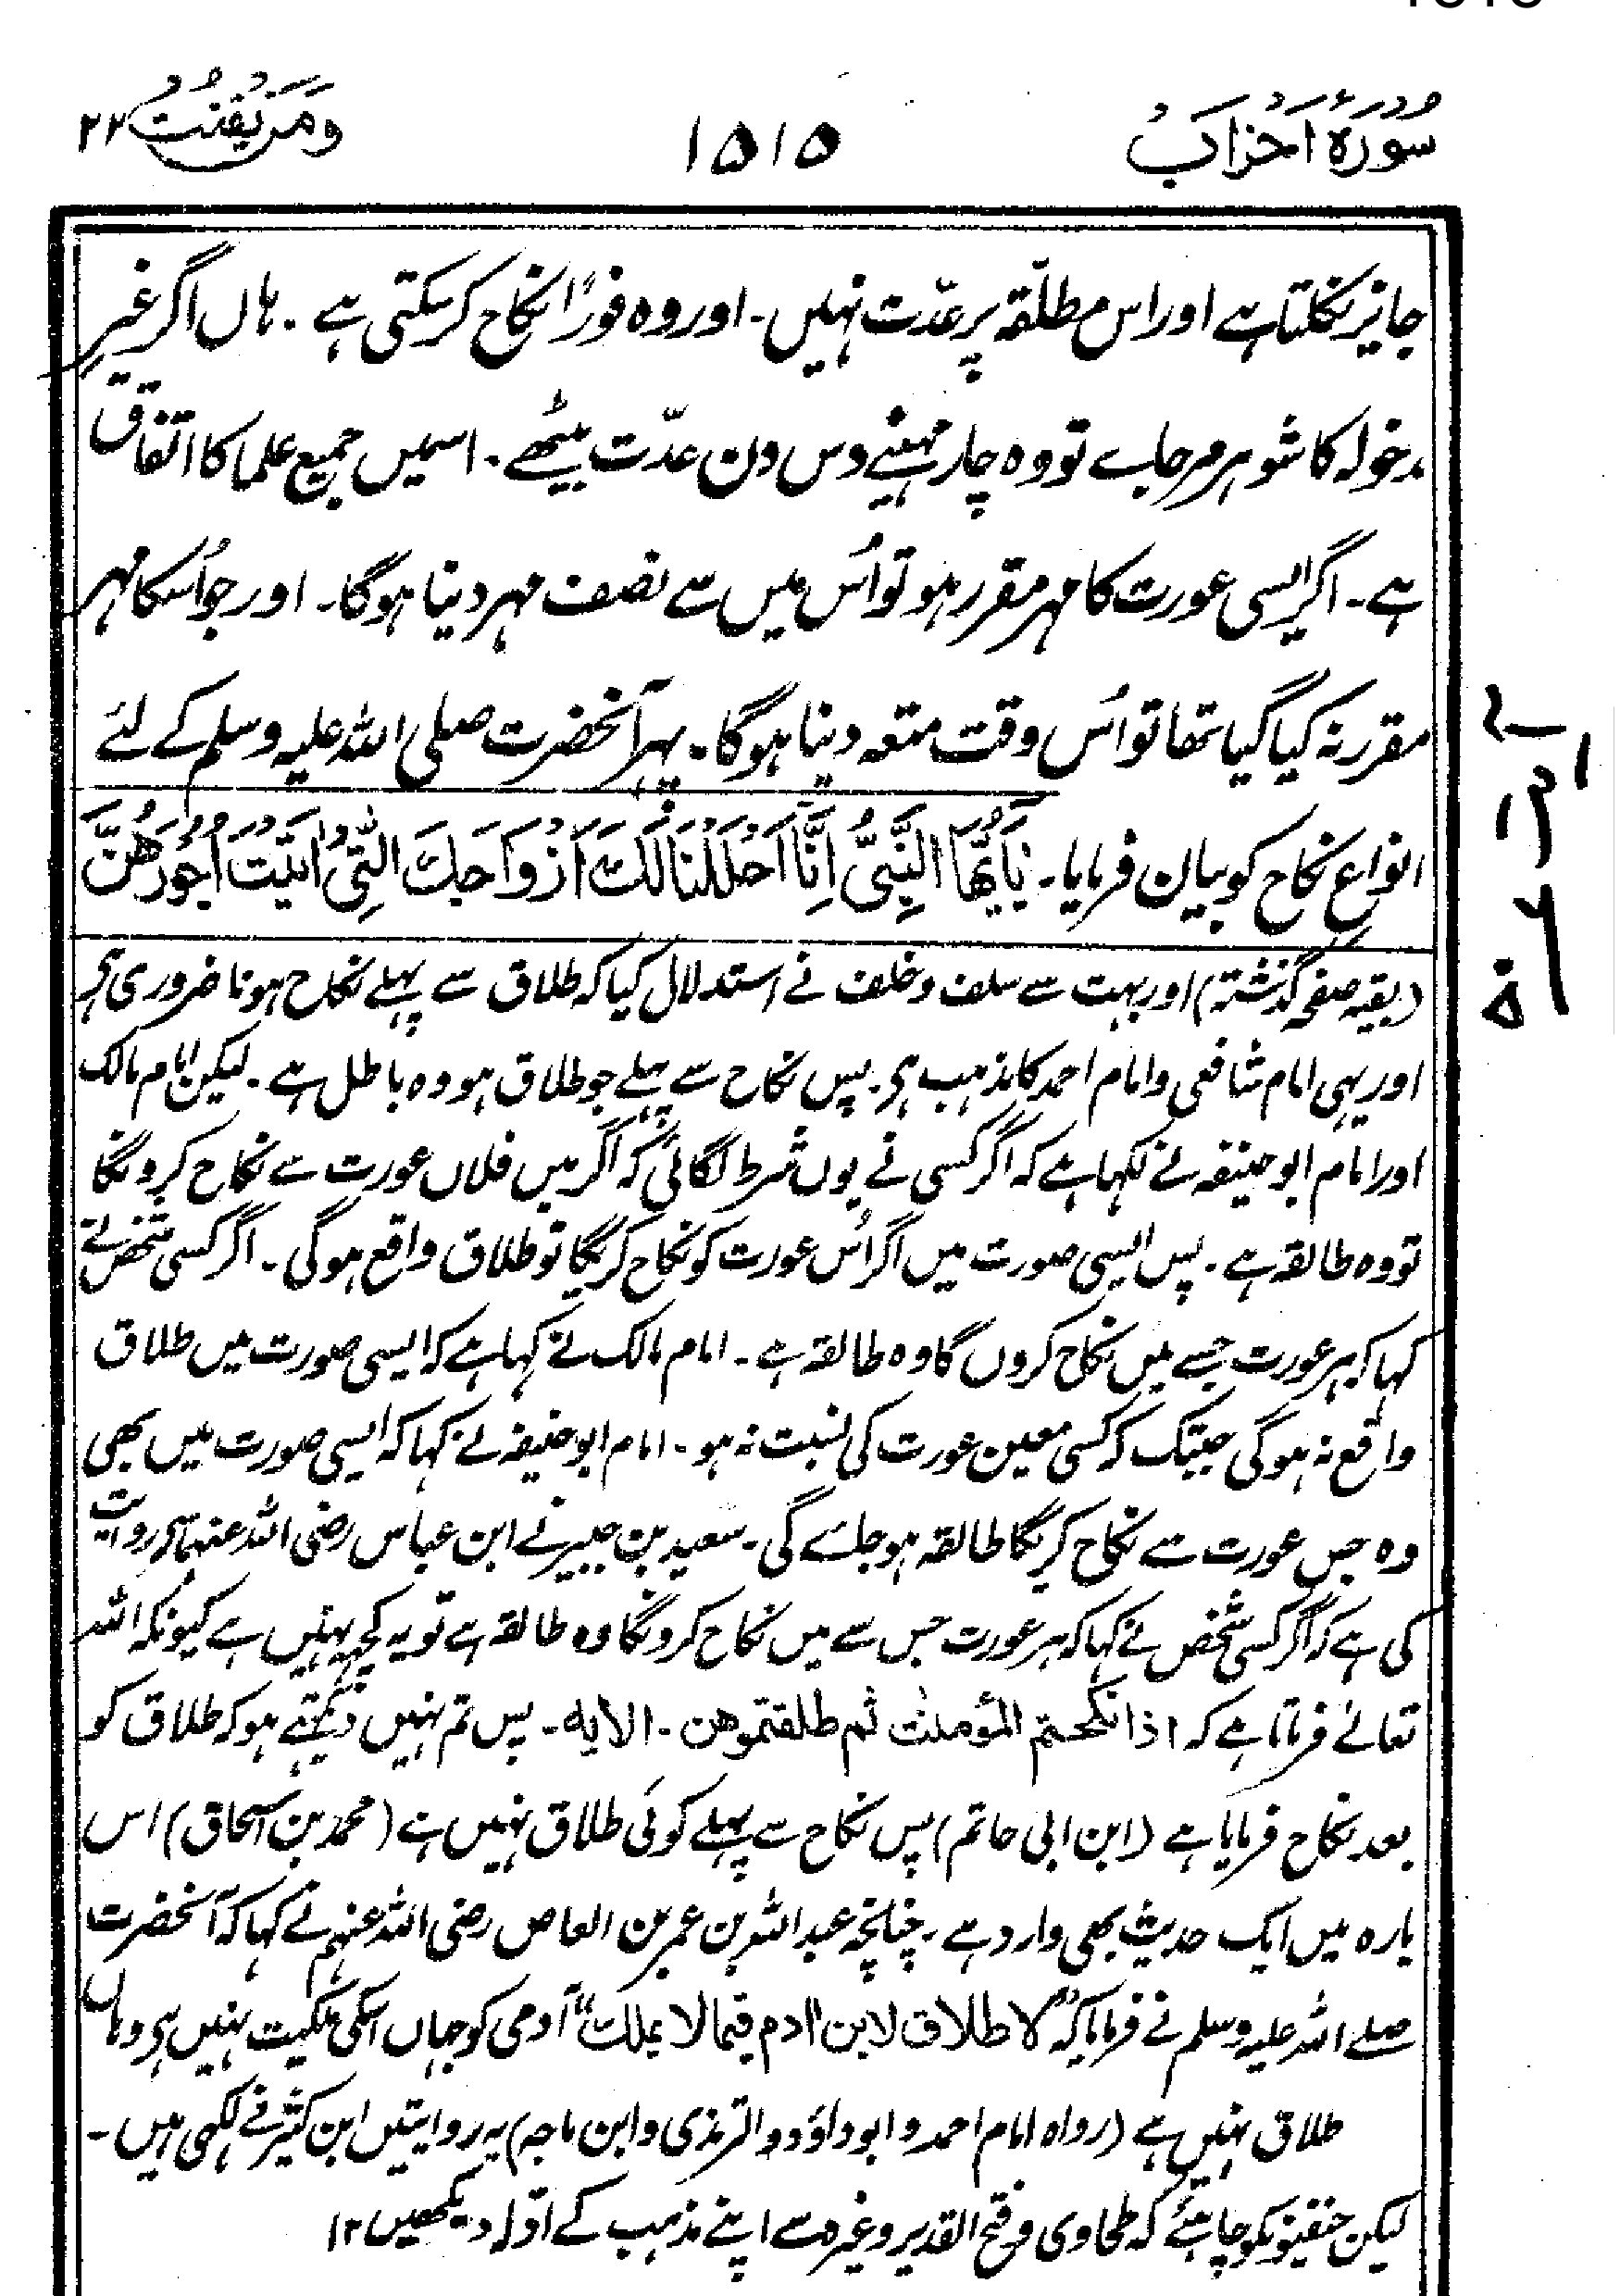 سورۂ احزاب
۱۵۱۵
ومن یقنت ۲۲
جایز نکلتا ہے اور اس مطلّقہ پر عدّت نہیں۔ اور وہ فورًا نکاح کرسکتی ہے۔ ہاں اگر غیر
مدخولہ کا شوہر مرجاے تو وہ چار مہینے دس دن عدّت بیٹھے۔ اسمیں جمیع علما کا اتفاق
ہے۔ اگر ایسی عورت کا مہر مقرر ہو تو اُس میں سے نصف مہر دینا ہوگا۔ اور جو اُسکا مہر
مقرر نہ کیا گیا تھا تو اُس وقت متعہ دینا ہوگا۔ پہر آنحضرت صلی اللہ علیہ وسلم کے لئے
انواع نکاح کو بیان فرمایا۔ يَآيُّهَا النَّبِيُّ اِنَّا اَحْلَلْنَا لَكَ اَزْوَاجَكَ الّٰتِيْ اٰتَيْتَ اُجُوْرَهُنَّ
(بقیہ صفحہ گذشتہ) اور بہت سے سلف و خلف نے استدلال کیا کہ طلاق سے پہلے نکاح ہونا ضروری ہی
اور یہی امام شافعی و امام احمد کا مذہب ہی۔ پس نکاح سے پہلے جو طلاق ہو وہ باطل ہے۔ لیکن امام مالک
اور امام ابو حنیفہ نے لکہا ہے کہ اگر کسی نے یوں شرط لگائی کہ اگر میں فلاں عورت سے نکاح کرونگا
تو وہ طالقہ ہے۔ پس ایسی صورت میں اگر اُس عورت کو نکاح کریگا تو طلاق واقع ہوگی۔ اگر کسی شخص نے
کہا کہ ہر عورت جسے میں نکاح کروں گا وہ طالقہ ہے۔ امام مالک نے کہا ہے کہ ایسی صورت میں طلاق
واقع نہ ہوگی جبتک کہ کسی معین عورت کی نسبت نہ ہو۔ امام ابو حنیفہ نے کہا کہ ایسی صورت میں بھی
وہ جس عورت سے نکاح کریگا طالقہ ہوجاے گی۔ سعید بن جبیر نے ابن عباس رضی اللہ عنہما سی روایت
کی ہے کہ اگر کسی شخص نے کہا کہ ہر عورت جس سے میں نکاح کرونگا وہ طالقہ ہے تو یہ کچہہ نہیں ہے کیونکہ اللہ
تعالے فرماتا ہے کہ اذا نكحتم المؤمنٰت ثم طلقتموهن۔ الایه۔ پس تم نہیں دیکہتے ہو کہ طلاق کو
بعد نکاح فرمایا ہے (ابن ابی حاتم) پس نکاح سے پہلے کوئی طلاق نہیں ہے (محمد بن اسحاق) اس
بارہ میں ایک حدیث بھی وارد ہے۔ چنانچہ عبد اللہ بن عمر بن العاص رضی اللہ عنہم نے کہا کہ آنحضرت
صلے اللہ علیہ وسلم نے فرمایا کہ "لا طلاق لابن اٰدم فيما لا يملك" آدمی کو جہاں اسکی ملکیت نہیں ہی وہاں
طلاق نہیں ہے (رواہ امام احمد و ابو داؤد و الترمذی و ابن ماجہ) یہ روایتیں ابن کثیر نے لکھی ہیں۔
لیکن حنفیونکو چاہئے کہ طحاوی و فتح القدیر وغیرہ سے اپنے مذہب کے ادّلہ دیکھیں ۱۲